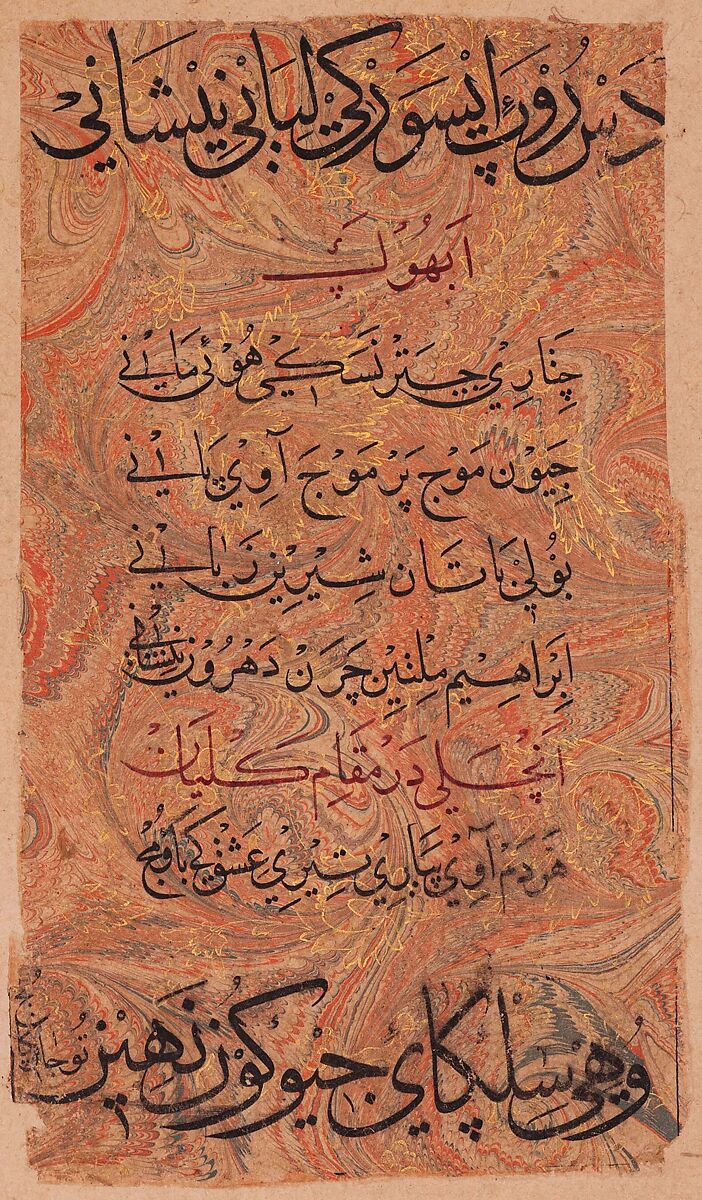 دَسْ رُوْپ ایسَوَرْ کیْ لِبَانیِ نِیْشَانیْ
اَبهُوْگ
چَنَارِيْ چِتَرْ نَسَکیْ هُوْئی مَانیْ
جِیْوْن مَوْج پَرْ مَوْجَ آوِيْ پَانیْ
بُوْلیْ بَاتَان شِیْرِیْن زَبَانیْ
اِبْرَاهِیْم مِلْتیْن چَرَنْ دَهَرُوْن پَیْشَانیْ
اَنْچَلیْ دَرْ مَقَامِ کَلْیَان
هَرْدَمْ آوِيْ پِیَارِيْ تِیْرِيْ عِشْق کی بَاوُ مُجْ
وُهیْ سَلْپکَايْ جیْوْ کُوْن نَهِیْن
تُوْ